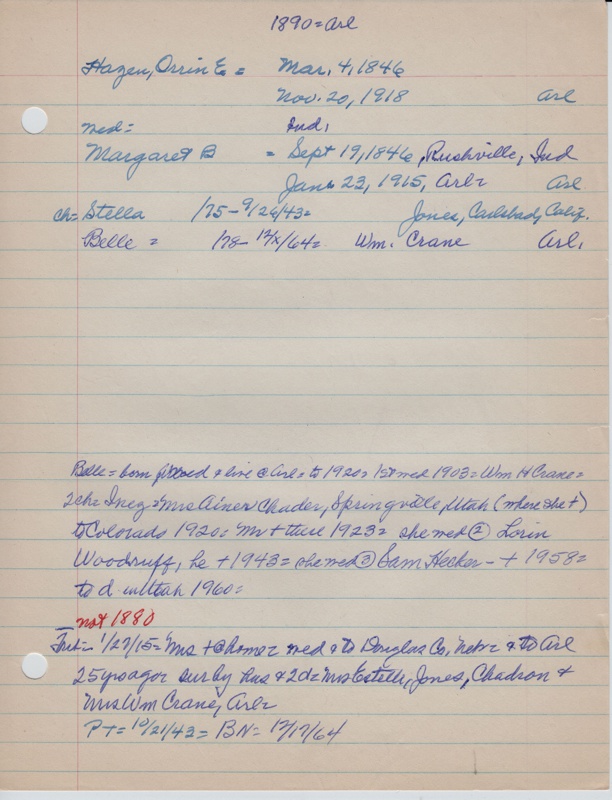 1890 = Arl
Hazen, Orrin E = Mar. 4, 1846
Nov. 20, 1918 Arl
med = Ind,
Margaret B = Sept 19, 1846, Rushville, Ind
Jan 23, 1915, Arl = Arl
ch = Stella /75 - 9/26/43 = Jones, Carlsbad, Calif.
Belle = /78 - 12/x/64 = Wm. Crane Arl.
Belle = born & live @ Arl = to 1920 = 1st med 1903 = Wm H Crane =
2 ch = Inez = Mrs Ainer Chader, Springville, Utah (where she +)
to Colorado 1920 = Mr + there 1923 = she med ② Lorin
Woodruff, he + 1943 = she med ③ Sam Hecker - + 1958 =
to d in Utah 1960 =
not 1880
1/27/15 = Mrs + @ home = med & to Douglas Co, Nebr & to Arl
25 yrs ago = sur by hus & 2 d = Mrs Estelle, Jones, Chadron &
Mrs Wm Crane, Arl =
PT = 10/21/43 = BN = 12/17/64